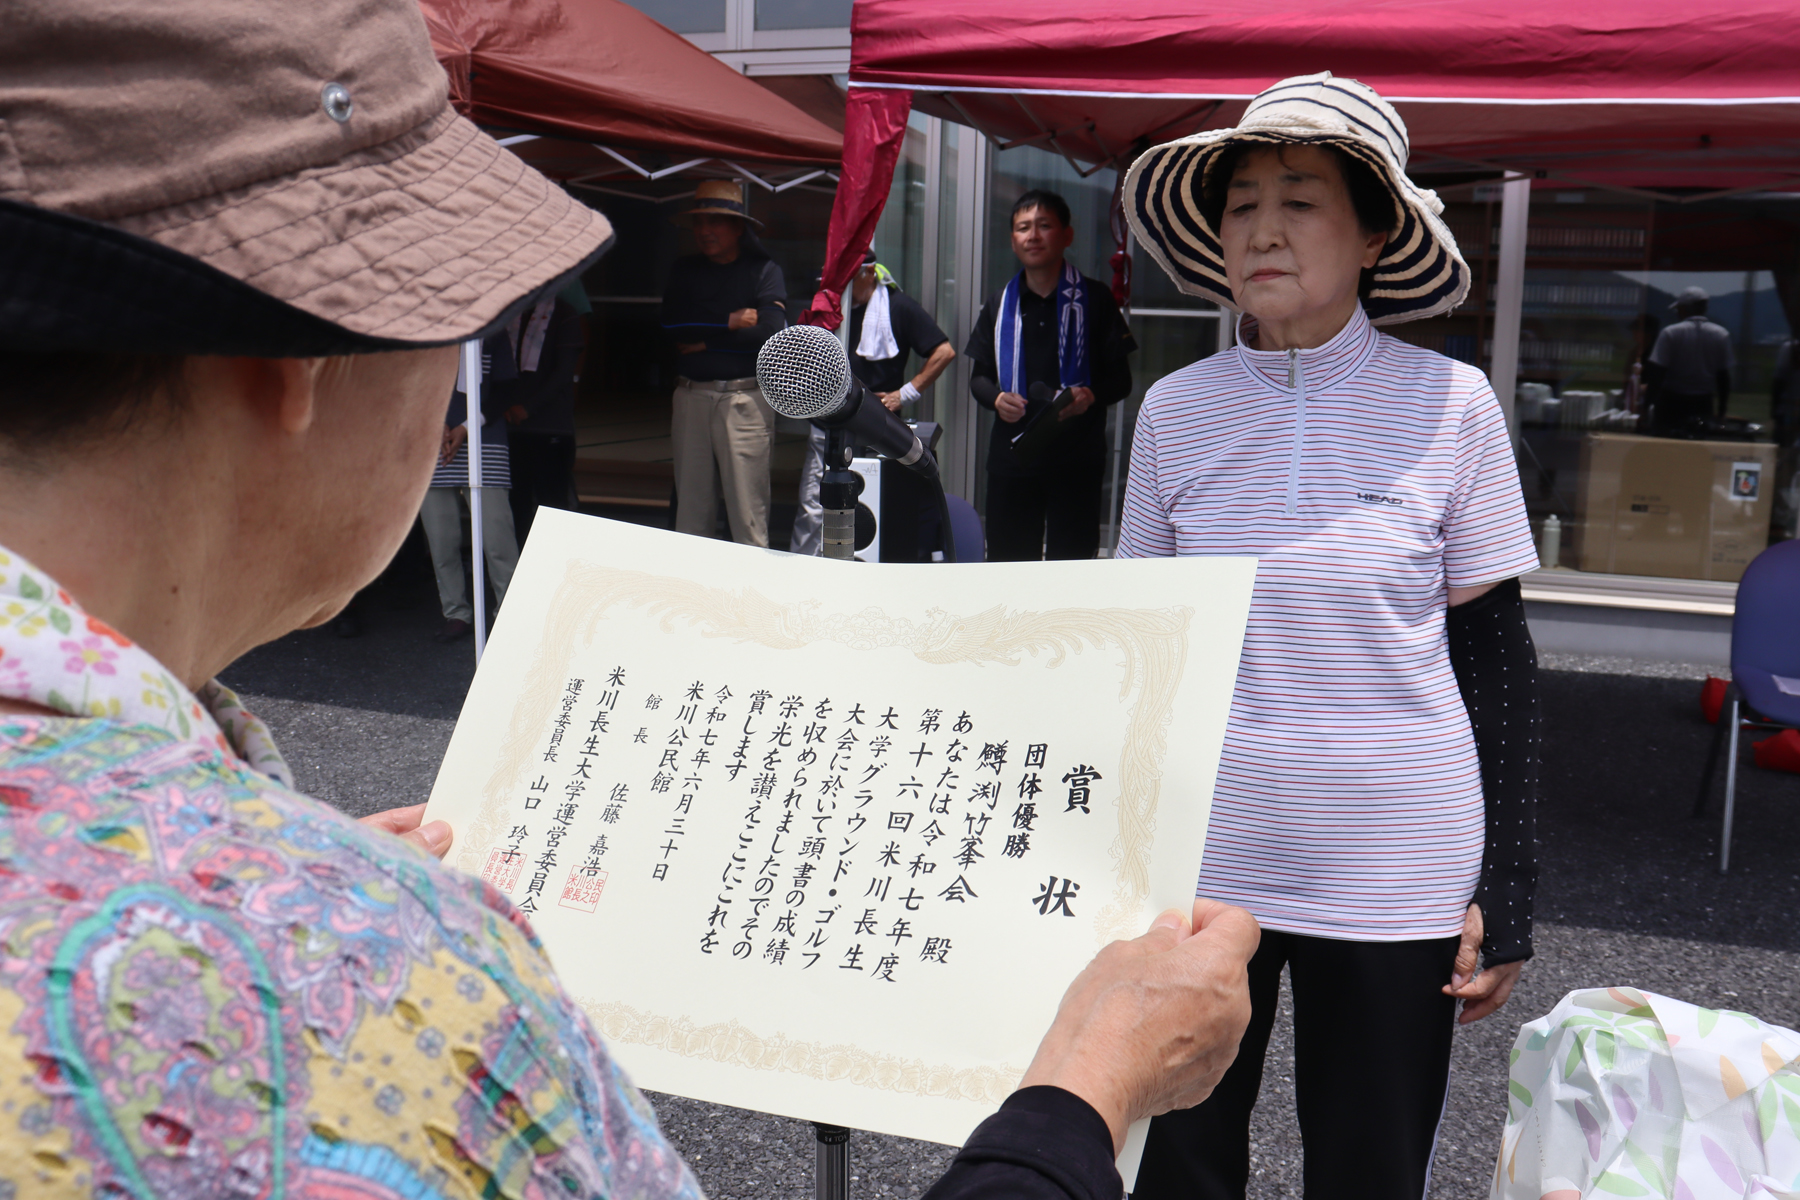 賞状
団体優勝
鱒渕竹峯会 殿
あなたは令和七年度
第十六回米川長生
大学グラウンド・ゴルフ
大会に於いて頭書の成績
を収められましたのでその
栄光を讃えここにこれを
賞します
令和七年六月三十日
米川公民館
館長 佐藤 嘉浩
米川長生大学運営委員会
運営委員長 山口 玲子
HEAD